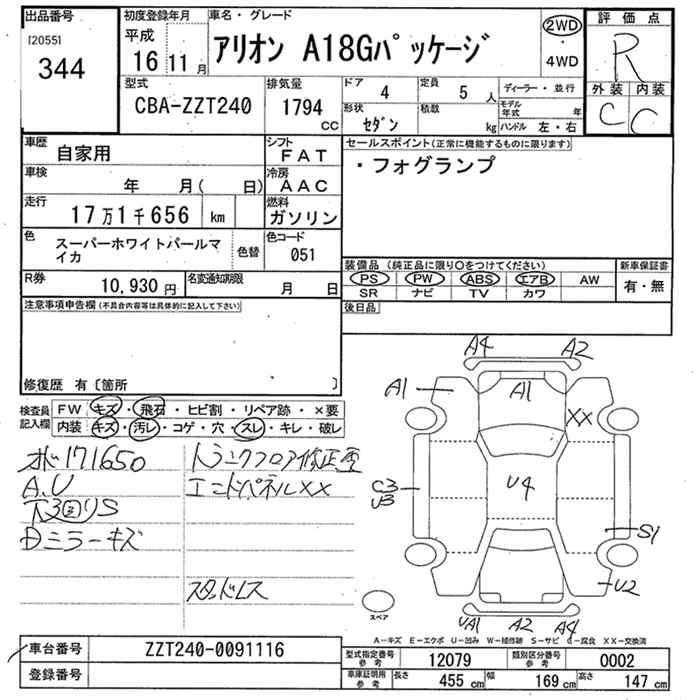 出品番号
[2055]
344
初度登録年月
平成
16 11 月
車名・グレード
アリオン A18Gパッケージ
2WD
・
4WD
評価点
R
外装 内装
C C
型式
CBA-ZZT240
排気量
1794 cc
ドア 4
定員 5 人
形状
セダン
積載 kg
ディーラー・並行
モデル年式 年
ハンドル 左・右
車歴
自家用
シフト
FAT
車検
年 月( 日)
冷房
AAC
走行
17万1千656 km
燃料
ガソリン
色
スーパーホワイトパールマイカ
色替
色コード
051
R券
10,930 円
名変通知期限
月 日
セールスポイント(正常に機能するものに限ります)
・フォグランプ
装備品 (純正品に限り〇をつけてください)
PS PW ABS エアB AW
SR ナビ TV カワ
新車保証書
有・無
後日品
注意事項申告欄(不具合内容等は具体的に記入して下さい)
修復歴 有〔箇所 〕
検査員記入欄
FW キズ・飛石・ヒビ割・リペア跡・×要
内装 キズ・汚レ・コゲ・穴・スレ・キレ・破レ
オド171650
A.U
下3回りS
Dミラーキズ
トランクフロア修正歴
エンドパネルXX
スタッドレス
A4 A2
A1 A1
XX
C3
U3
U4
S1
U2
UA1 A2 A4
スペア
A-キズ E-エクボ U-凹み W-補修跡 S-サビ C-腐食 XX-交換済
車台番号
ZZT240-0091116
登録番号
型式指定番号 参考
12079
類別区分番号 参考
0002
車庫証明用 参考
長さ 455 cm
幅 169 cm
高さ 147 cm